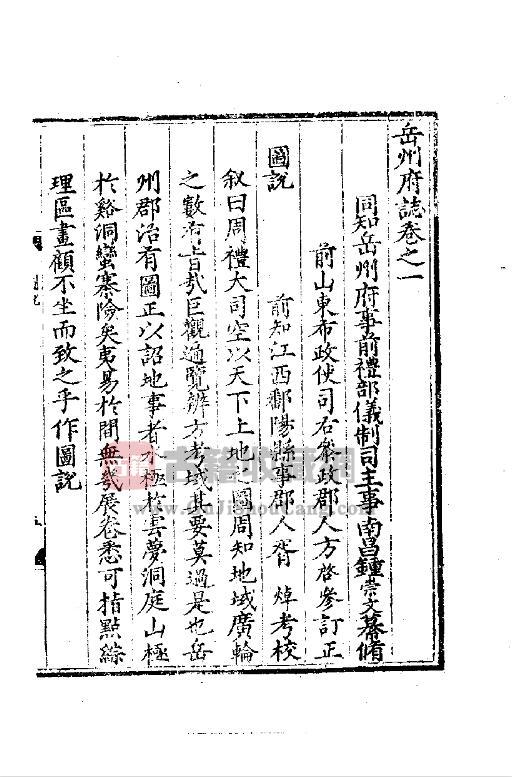 岳州府誌卷之一
同知岳州府事前禮部儀制司主事南昌鍾崇文纂脩
前山東布政使司右叅政郡人方啓參訂正
前知江西鄱陽縣事郡人胥焯考校
圖説
叙曰周禮大司空以天下土地之圖周知地域廣輪
之數若昔哉巨觀遍覽辨方考域其要莫過是也岳
州郡治有圖正以詔地事者水極於雲夢洞庭山極
於谿洞蠻寨險矣夷易於間無幾展卷悉可指點綜
理區畫顧不坐而致之乎作圖説
古籍收藏網
www.GuJiShouCang.com